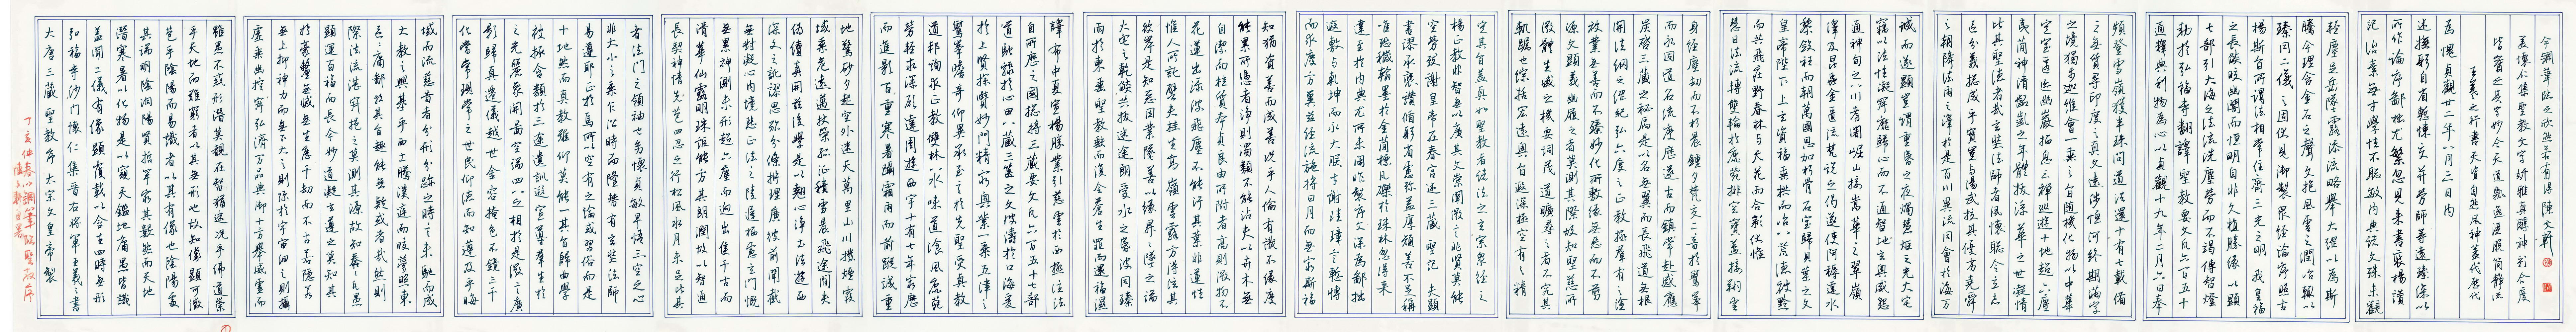 丁亥仲春以鋼筆臨聖教序
大唐三藏聖教序 太宗文皇帝製
弘福寺沙門懷仁集晉右將軍王羲之書
蓋聞二儀有像顯覆載以含生四時無形
潛寒暑以化物是以窺天鑑地庸愚皆識
其端明陰洞陽賢哲罕窮其數然而天地
苞乎陰陽而易識者以其有像也陰陽處
乎天地而難窮者以其無形也故知像顯可徵
雖愚不惑形潛莫覩在智猶迷況乎佛道崇
虛乘幽控寂弘濟萬品典御十方舉威靈而
無上抑神力而無下大之則彌於宇宙細之則攝
於豪釐無滅無生歷千劫而不古若隱若
顯運百福而長今妙道凝玄遵之莫知其
際法流湛寂挹之莫測其源故知蠢蠢凡愚
區區庸鄙投其旨趣能無疑或者哉然則
大教之興基乎西土騰漢庭而皎夢照東
域而流慈昔者分形分跡之時言未馳而成
化當常現常之世民仰德而知遵及乎晦
影歸真遷儀越世金容掩色不鏡三千
之光麗象開圖空端四八之相於是微言廣
被拯含類於三途遺訓遐宣導群生於
十地然而真教難仰莫能一其旨歸曲學
易遵耶正於焉所以空有之論或習俗而是
非大小之乘乍沿時而隆替有玄奘法師
者法門之領袖也幼懷貞敏早悟三空之心
長契神情先苞四忍之行松風水月未足比其
清華仙露明珠詎能方其朗潤故以智通
無累神測未形超六塵而迥出隻千古而
無對凝心內境悲正法之陵遲栖慮玄門慨
深文之訛謬思欲分條析理廣彼前聞截
偽續真開茲後學是以翹心淨土法遊西
域乘危遠邁杖策孤征積雪晨飛途閒失
地驚砂夕起空外迷天萬里山川撥煙霞
而進影百重寒暑躡霜雨而前蹤誠重
勞輕求深願達周遊西宇十有七年窮歷
道邦詢求正教雙林八水味道餐風鹿菀
鷲峯瞻奇仰異承至言於先聖受真教
於上賢探賾妙門精窮奧業一乘五律之
道馳驟於心田八藏三篋之文波濤於口海爰
自所歷之國總將三藏要文凡六百五十七部
譯布中夏宣揚勝業引慈雲於西極注法
雨於東垂聖教缺而復全蒼生罪而還福濕
火宅之乾焰共拔迷途朗愛水之昏波同臻
彼岸是知惡因業墜善以緣昇昇墜之端
惟人所託譬夫桂生高嶺雲露方得泫其
花蓮出淥波飛塵不能汙其葉非蓮性
自潔而桂質本貞良由所附者高則微物不
能累所憑者淨則濁類不能沾夫以卉木無
知猶資善而成善況乎人倫有識不緣慶
而求慶方冀茲經流施將日月而無窮斯福
遐敷與乾坤而永大朕才謝珪璋言慚博
達至於內典尤所未閑昨製序文深為鄙拙
唯恐穢翰墨於金簡標瓦礫於珠林忽得來
書謬承褒讚循躬省慮彌蓋厚顏善不足稱
空勞致謝皇帝在春宮述三藏聖記 夫顯
揚正教非智無以廣其文崇闡微言非賢莫能
定其旨蓋真如聖教者諸法之玄宗眾經之
軌躅也綜括宏遠奧旨遐深極空有之精
微體生滅之機要詞茂道曠尋之者不究其
源文顯義幽履之者莫測其際故知聖慈所
被業無善而不臻妙化所敷緣無惡而不剪
開法網之綱紀弘六度之正教拯群有之塗
炭啓三藏之秘扃是以名無翼而長飛道無根
而永固道名流慶歷遂古而鎮常赴感應
身經塵劫而不朽晨鍾夕梵交二音於鷲峯
慧日法流轉雙輪於鹿菀排空寶蓋接翔雲
而共飛莊野春林與天花而合彩伏惟
皇帝陛下上玄資福垂拱而治八荒德被黔
黎斂衽而朝萬國恩加朽骨石室歸貝葉之文
澤及昆蟲金匱流梵說之偈遂使阿耨達水
通神甸之八川耆闍崛山接嵩華之翠嶺
竊以法性凝寂靡歸心而不通智地玄奧感懇
誠而遂顯豈謂重昏之夜燭慧炬之光火宅
之朝降法雨之澤於是百川異流同會於海萬
區分義總成乎實豈與湯武校其優劣堯舜
比其聖德者哉玄奘法師者夙懷聰令立志
夷簡神清齠齔之年體拔浮華之世凝情
定室匿迹幽巖栖息三禪巡遊十地超六塵
之境獨步迦維會一乘之旨隨機化物以中華
之無質尋印度之真文遠涉恒河終期滿字
頻登雪嶺獲半珠問道法還十有七載備
通釋典利物為心以貞觀十九年二月六日奉
勑於弘福寺翻譯聖教要文凡六百五十
七部引大海之法流洗塵勞而不竭傳智燈
之長焰皎幽闇而恒明自非久植勝緣何以顯
揚斯旨所謂法相常住齊三光之明我皇福
臻同二儀之固伏見御製眾經論序照古
騰今理含金石之聲文抱風雲之潤治輒以
輕塵足岳墜露添流略舉大綱以為斯
記治素無才學性不聰敏內典諸文殊未觀
所作論序鄙拙尤繁忽見來書褒揚讚
述撫躬自省慚悚交并勞師等遠臻深以
為愧貞觀廿二年八月三日內
王羲之行書天資自然風神蓋代歷代
皆寶之字妙合天道簡靜流
美懷仁集聖教文字妍雅真醇神彩合度
今鋼筆臨之欣然若有得陳文